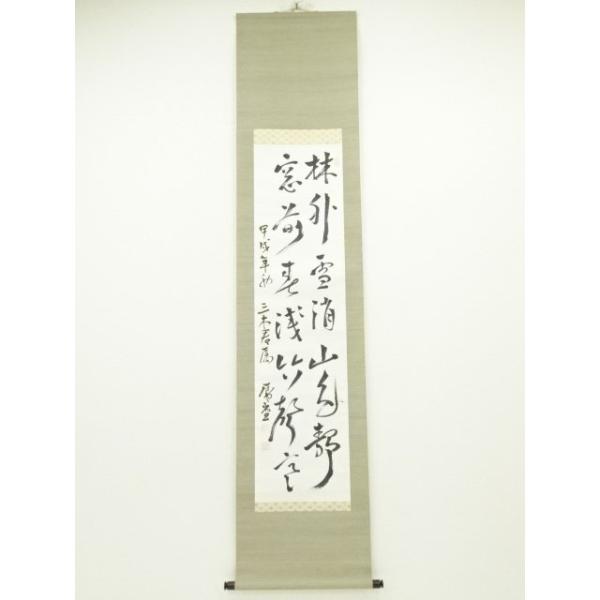 林外雪消山色靜
窓前春淺竹聲寒
甲戌年初 三木君属